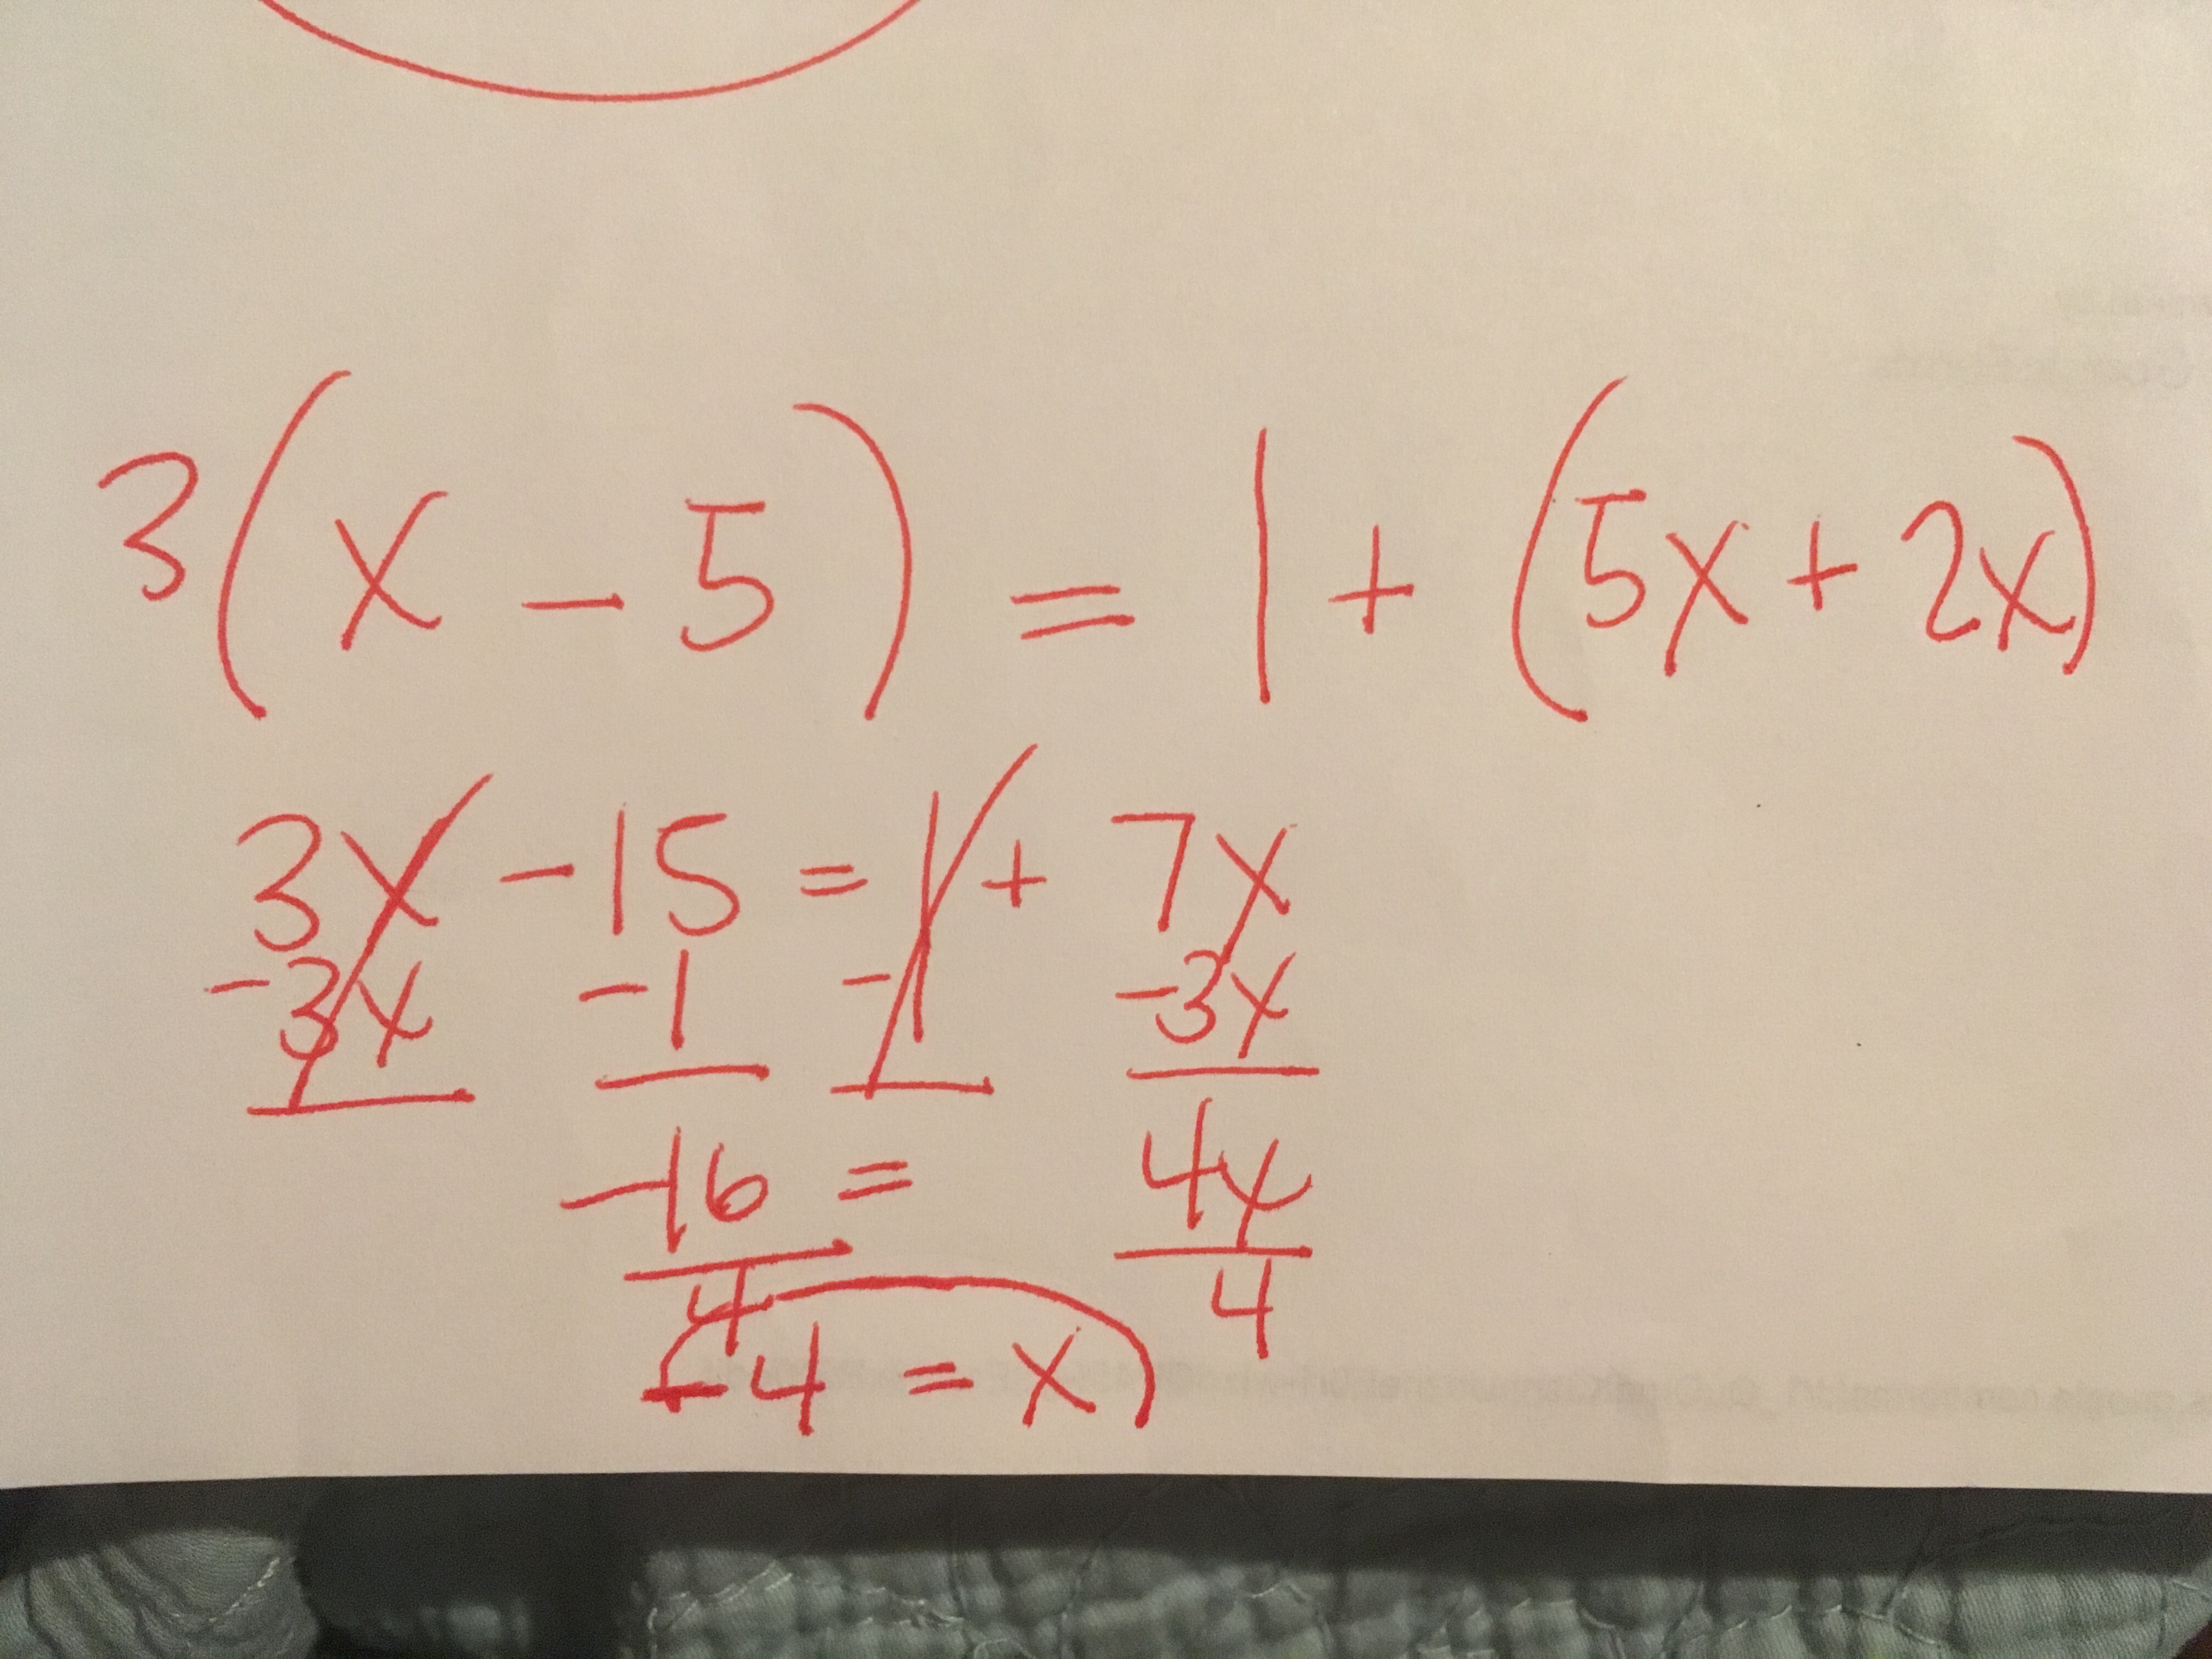 3(x - 5) = 1 + (5x + 2x)
3x - 15 = 1 + 7x
-3x -1 -1 -3x
-16 = 4x
4 4
-4 = x